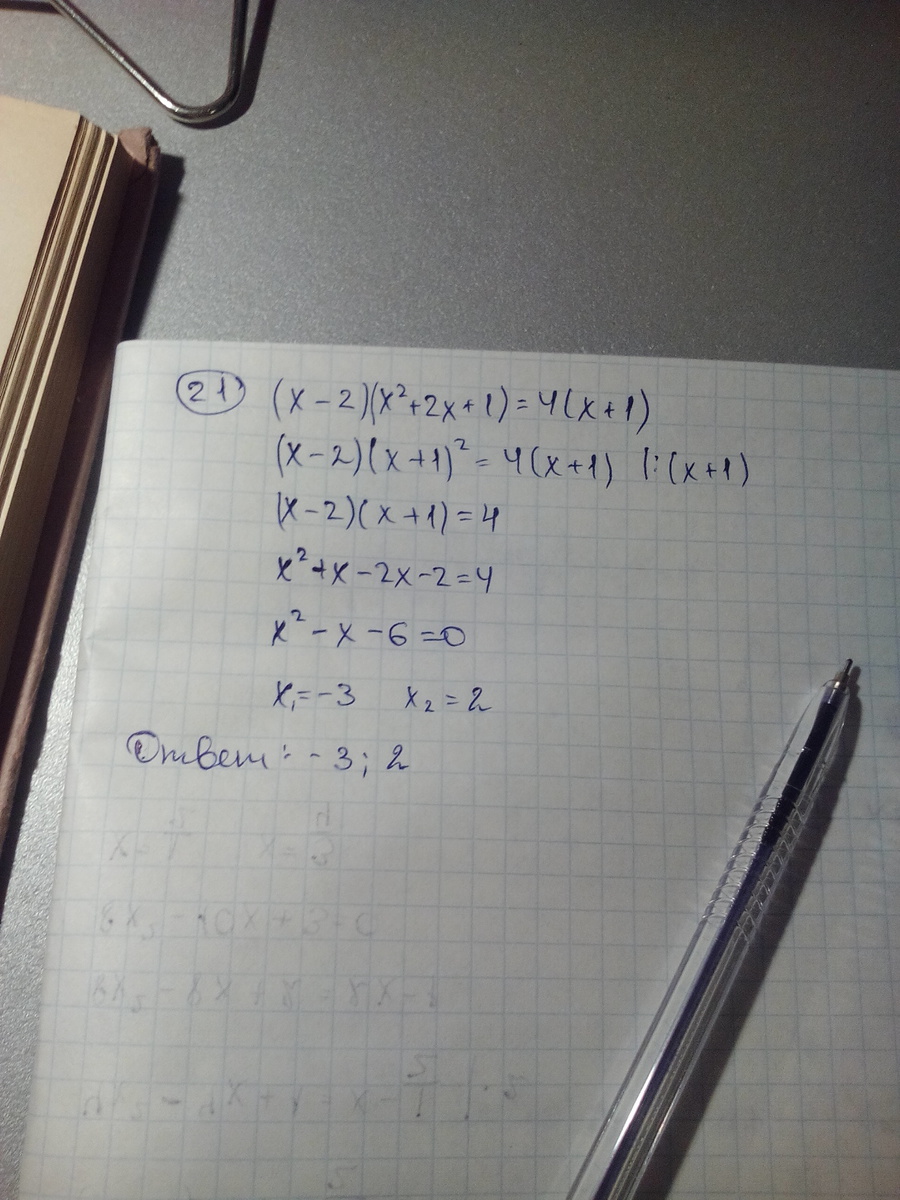 21 (x-2)(x²+2x+1)=4(x+1)
(x-2)(x+1)²=4(x+1) |:(x+1)
(x-2)(x+1)=4
x²+x-2x-2=4
x²-x-6=0
x₁=-3 x₂=2
Ответ: -3; 2